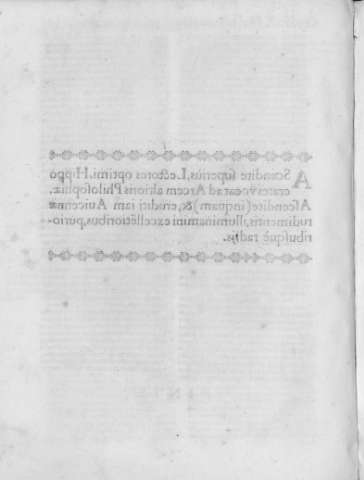 AScandite superius, Lectores optimi. Hippo
crates vocat ad Arcem altioris Philosophiæ.
Ascendite (inquam) &, eruditi iam Auicennæ
rudimentis, illuminamini excellētioribus, purio-
ribusquè radijs.